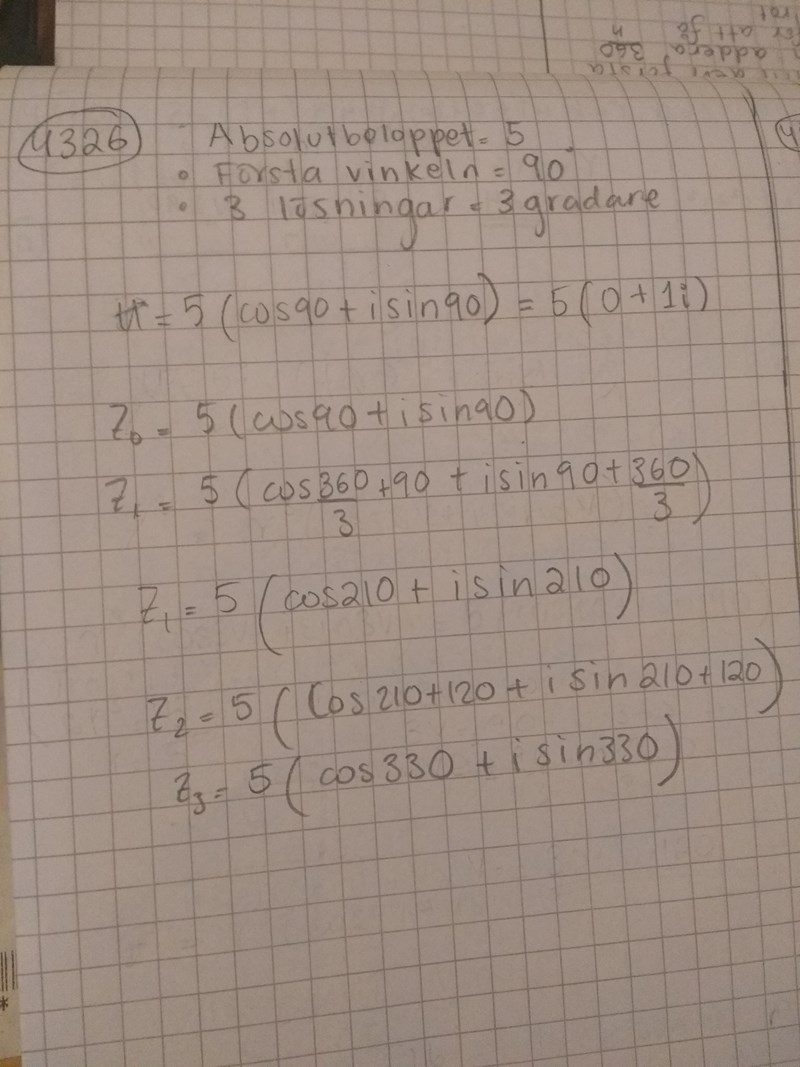 4326
Absolutbeloppet = 5
• Första vinkeln = 90°
• 3 lösningar = 3gradare
= 5 (cos90 + i sin90) = 5 (0 + 1i)
Z₀ = 5 (cos90 + i sin90)
Z₁ = 5 (cos 360/3 + 90 + i sin 90 + 360/3)
Z₁ = 5 (cos210 + i sin210)
Z₂ = 5 (cos 210+120 + i sin 210+120)
Z₃ = 5 (cos330 + i sin330)
att få
addera 360/n